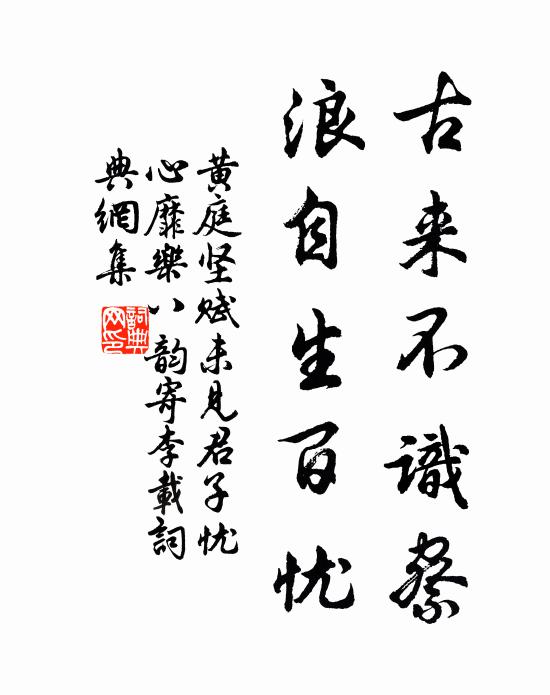 古来不識察
浪自生百忧
黄庭坚赋未见君子忧
心靡樂八韵寄李載詞
典網集
詞典网印